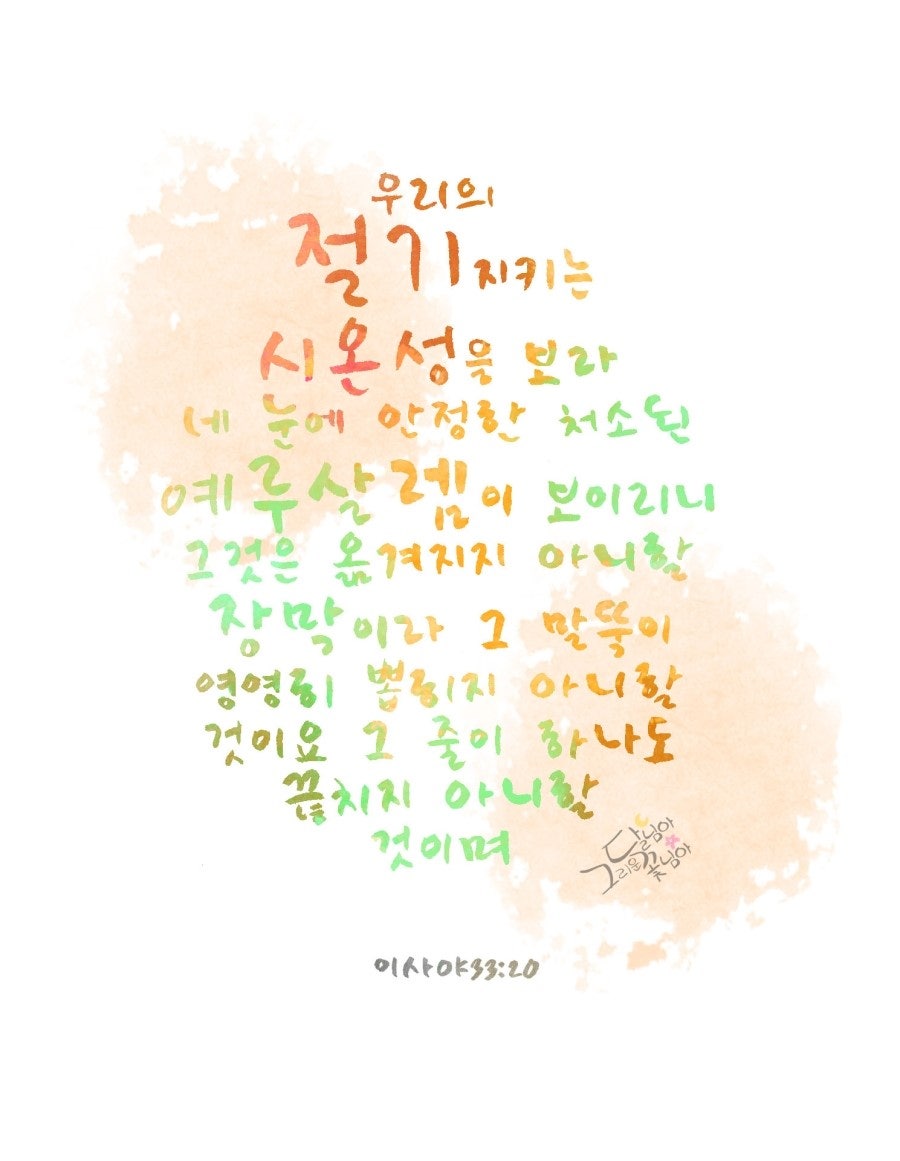 우리의
절기 지키는
시온성을 보라
네 눈에 안정한 처소된
예루살렘이 보이리니
그것은 옮겨지지 아니할
장막이라 그 말뚝이
영영히 뽑히지 아니할
것이요 그 줄이 하나도
끊치지 아니할
것이며
달님아
그리운 꽃님아
이사야33:20